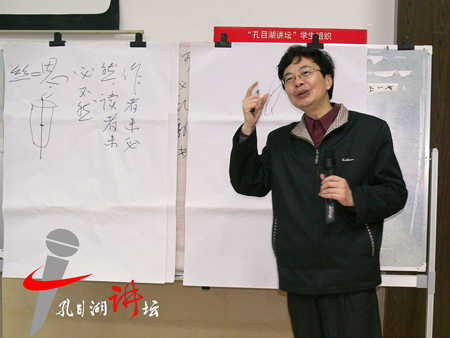 “孔目湖讲坛”学生组织
作者未必
然读者未
必不然
丝=思
孔目湖讲坛